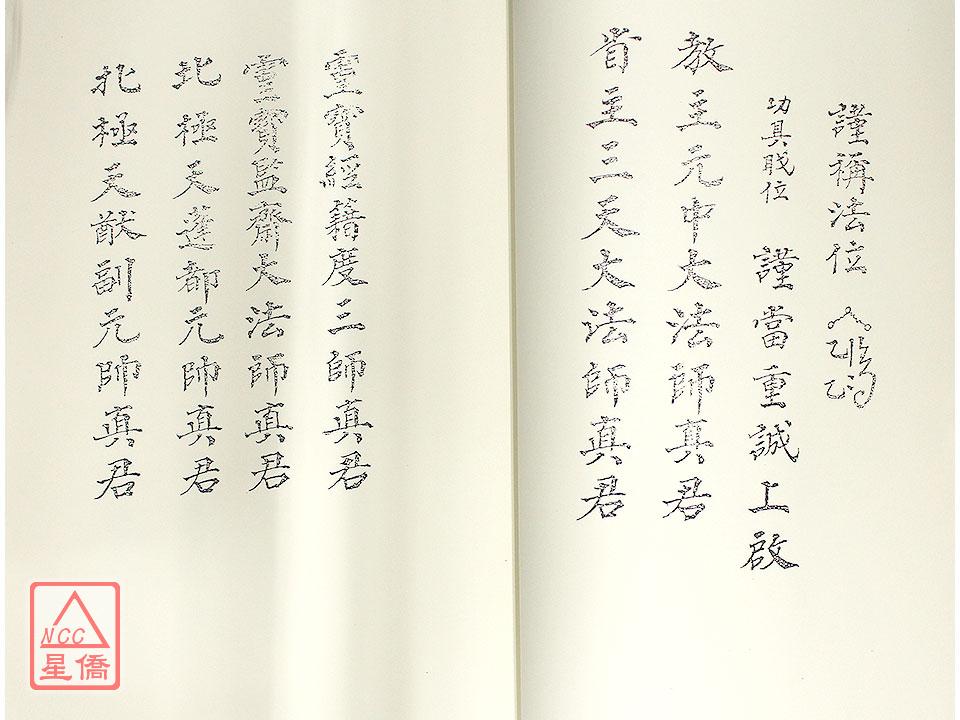 謹稱法位
功具職位
謹當重誠上啟
教主元中大法師真君
省主三天大法師真君
靈寶經籍度三師真君
靈寶監齋大法師真君
北極天蓬都元帥真君
北極天猷副元帥真君
NCC
星僑